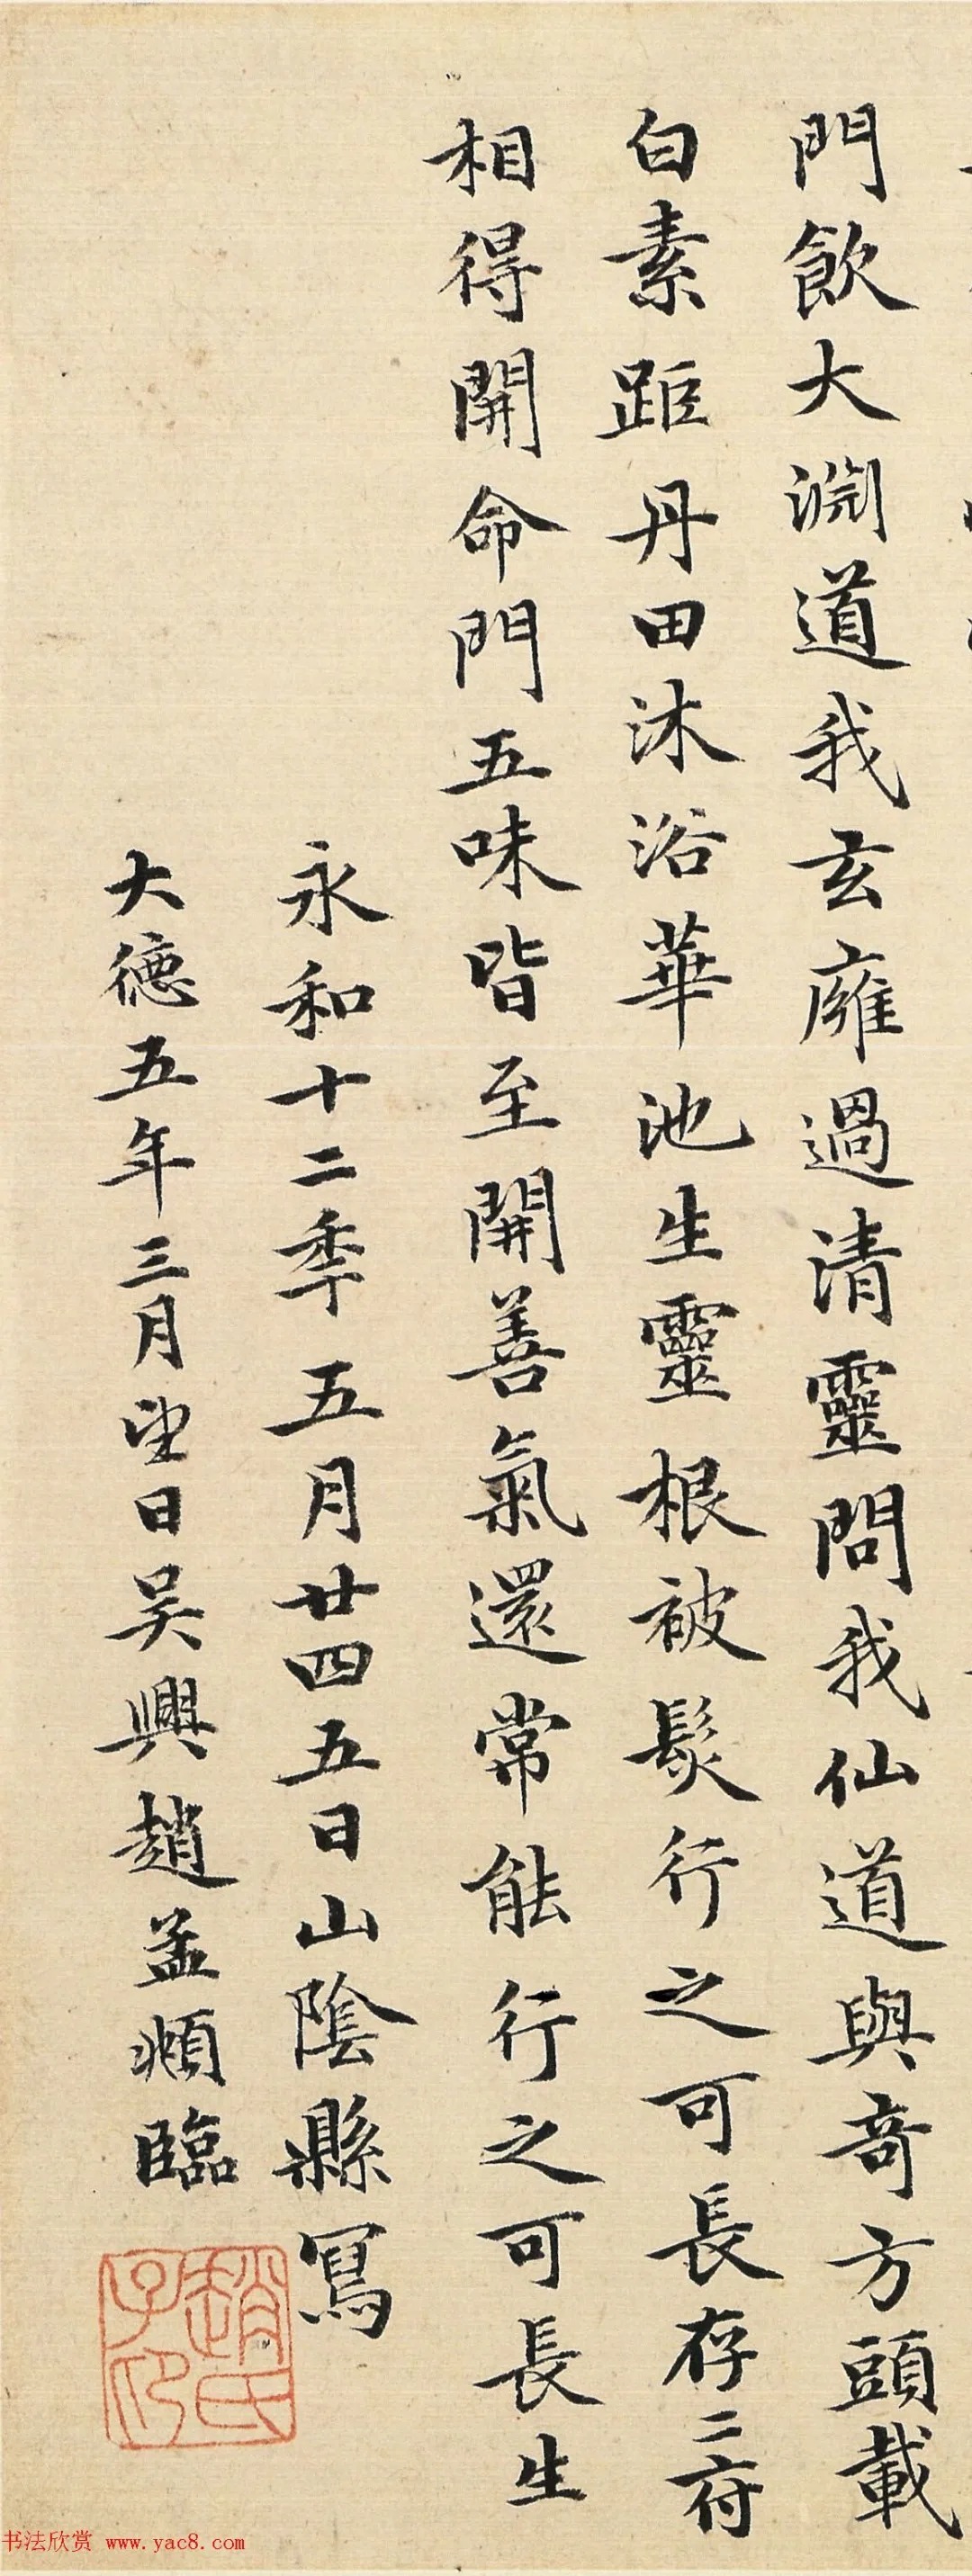 門飲大淵道我玄廱過清靈問我仙道與奇方頭載
白素距丹田沐浴華池生靈根被髮行之可長存二府
相得開命門五味皆至開善氣還常能行之可長生
永和十二年五月廿四五日山陰縣寫
大德五年三月望日吳興趙孟頫臨
趙氏子印
书法欣赏 www.yac8.com